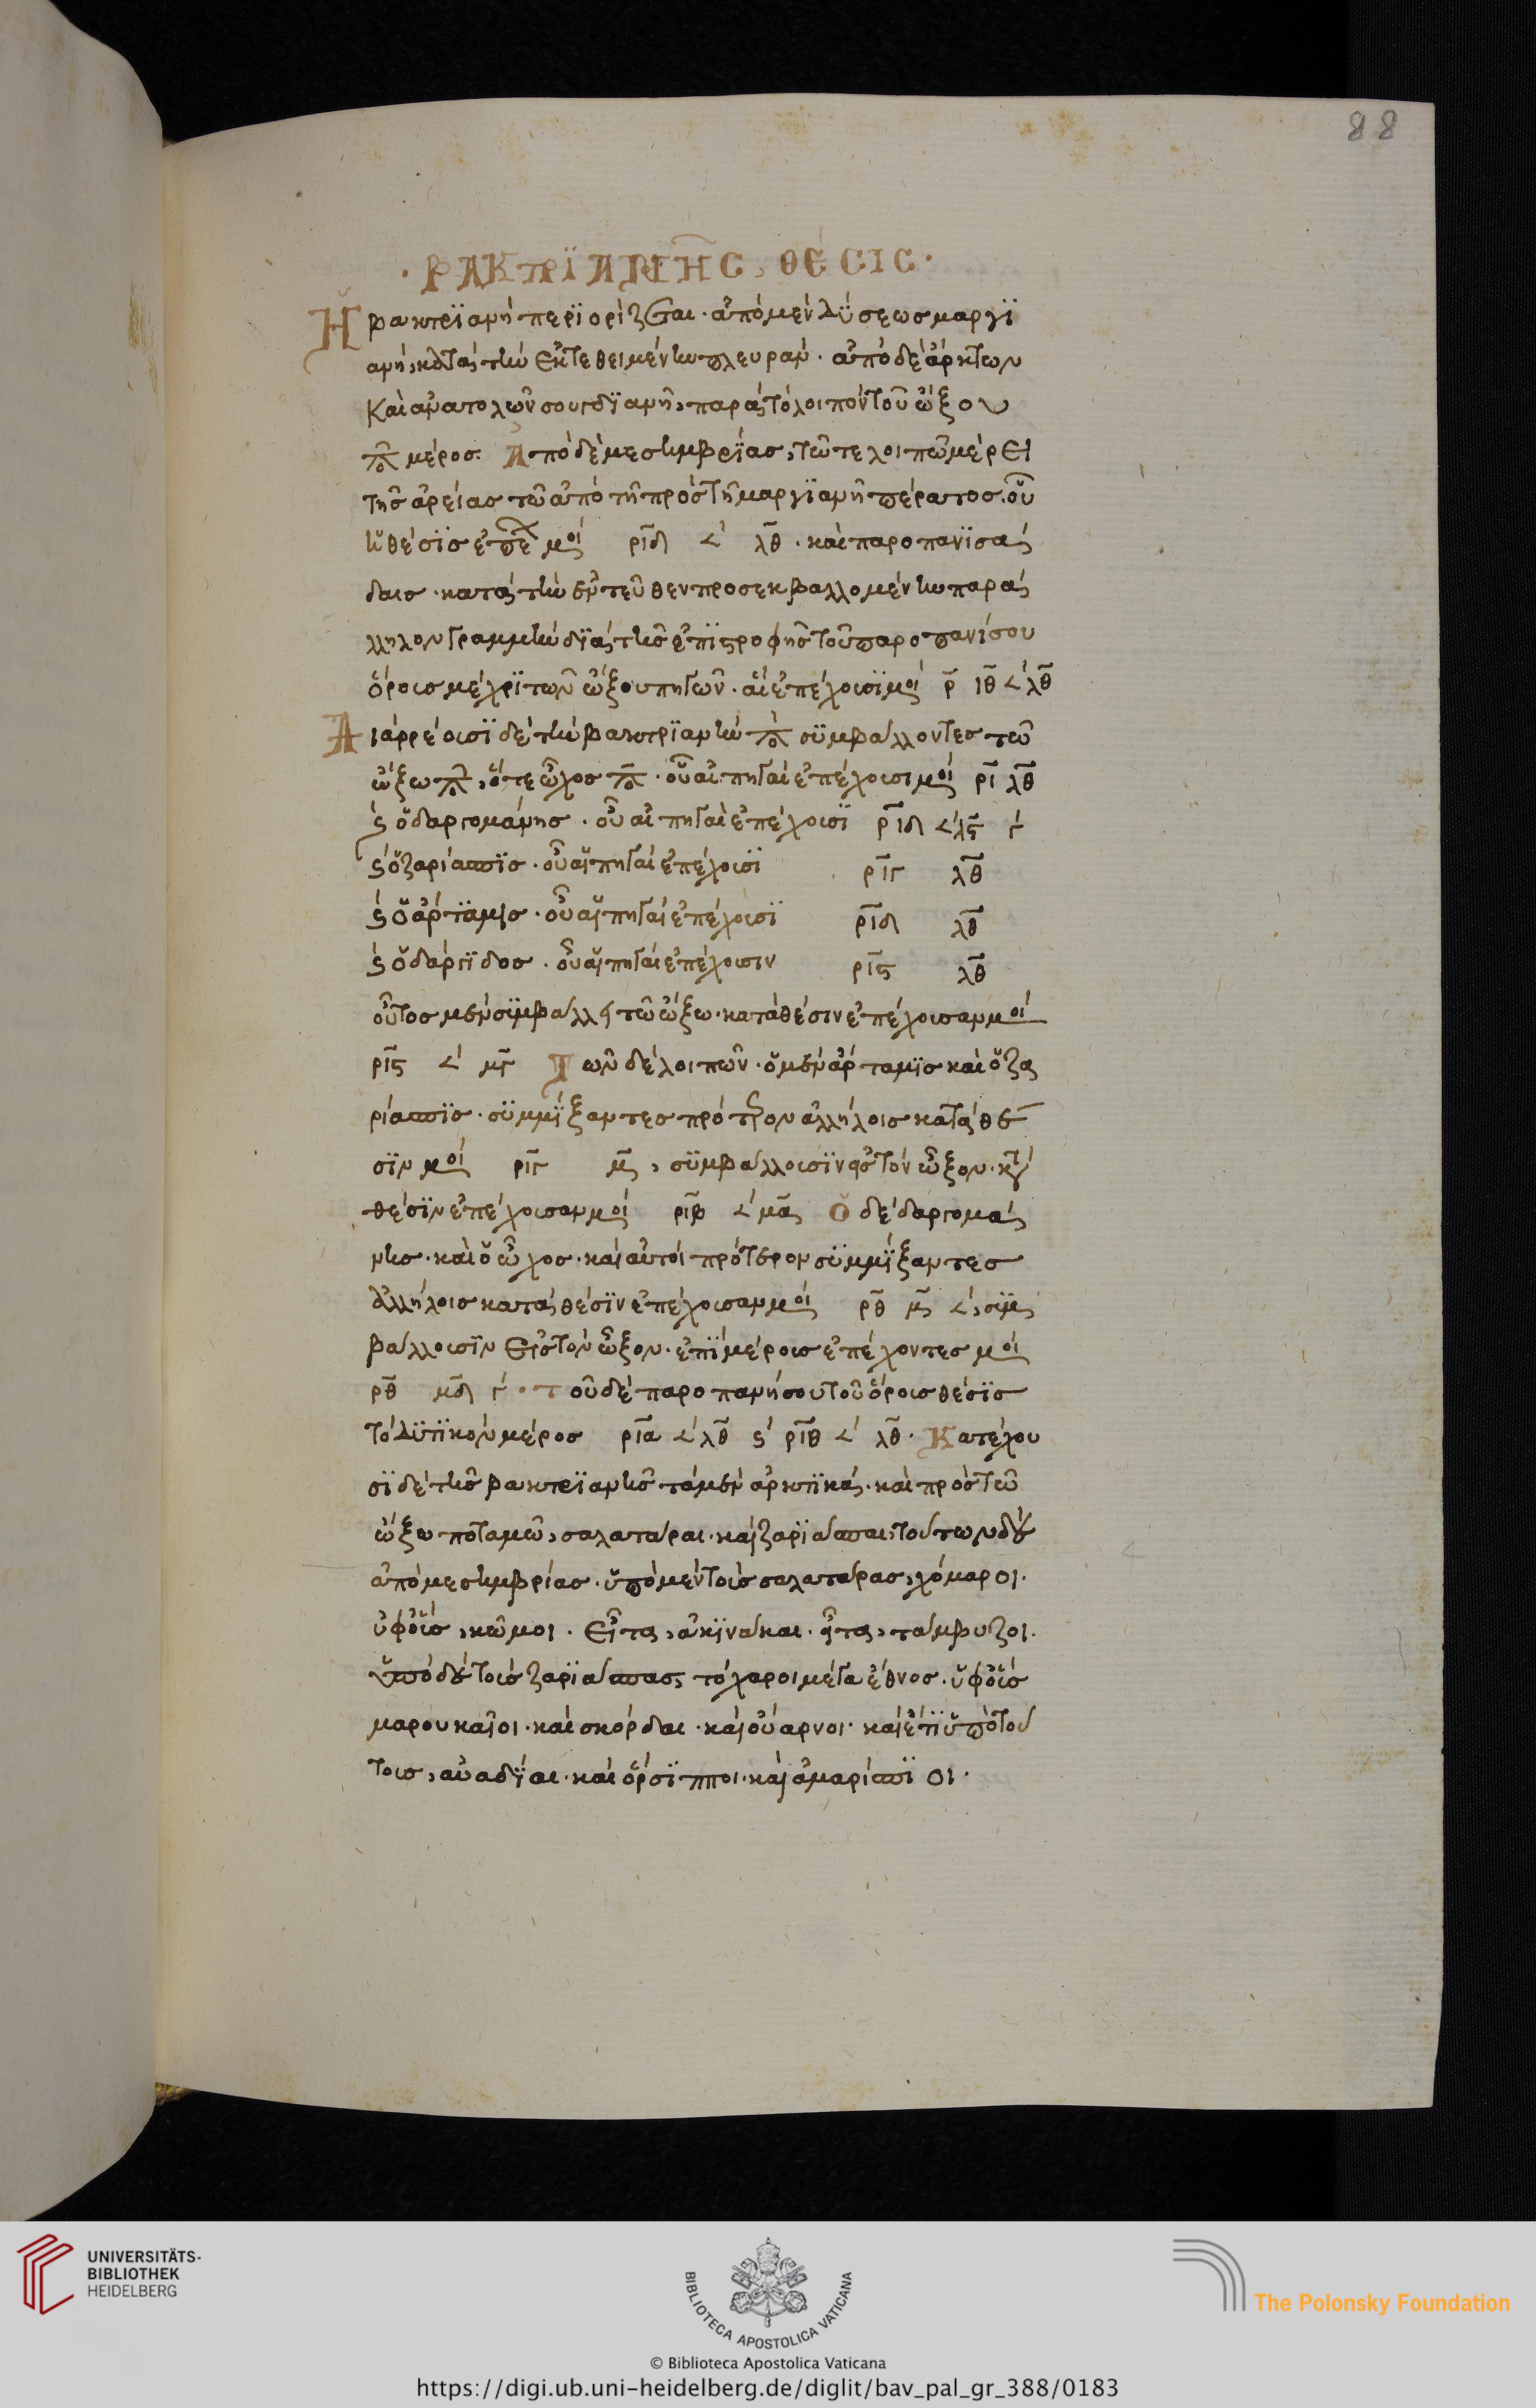 88
· ΒΑΚΤΡΪΑΝΗ͂C, ΘΈCΙC ·
Ἡ βακτρϊανὴ περϊορίζεται · ἀπὸ μὲν δΰσεως μαργϊ
ανῆ, κατὰ τὴν ἐκτεθειμένην πλευρὰν · ἀπὸ δὲ ἄρκτων
Καὶ ἀνατολῶν σουγδϊανῆ, παρὰ τὸ λοιπὸν τοῦ ὤξου
πο μέρος. Ἀπὸ δὲ μεσημβρΐας, τῶ τε λοιπῶ μέρει
τῆς ἀρείας τῶ ἀπὸ τῆ πρὸς τῆ μαργϊανῆ πέρατος · οὗ
ἡ θέσϊς ἐπέχ μοί ριδ 𐅵 λθ · καὶ παροπανϊσά
δαις · κατὰ τὴν ἐντεῦθεν προσεκβαλλομένην παρά
λληλον γραμμὴν δϊὰ τῆς ἐπϊςροφῆς τοῦ παροπανίσου
ὄρους μέχρϊ τῶν ὤξου πηγῶν · αἳ ἐπέχουσϊ μοί ρ ιθ 𐅵 λθ
Διαρρέουσϊ δὲ τὴν βακτρϊανὴν πο σϋμβάλλοντες τῶ
ὤξω πο, ὅτε ὦχος πο · οὗ αἱ πηγαὶ ἐπέχουσι μοί ρι λθ
ϛ ὁ δαργομάνης · οὗ αἱ πηγαὶ ἐπέχουσϊ ριδ 𐅵 λϛ γ
ϛ ὁ ζαρίασπϊς · οὗ αἱ πηγαὶ ἐπέχουσϊ ριγ λθ
ϛ ὁ ἀρτάμις · οὗ αἱ πηγαὶ ἐπέχουσϊ ριδ λθ
ϛ ὁ δάργϊδος · οὗ αἱ πηγαὶ ἐπέχουσιν ριϛ λθ
οὗτος μὲν σϋμβάλλει τῶ ὤξω · κατὰ θέσιν ἐπέχουσαν μοί
ριϛ 𐅵 μγ Τῶν δὲ λοιπῶν · ὁ μὲν ἀρταμϊς καὶ ὁ ζα
ρίασπϊς · σϋμμίξαντες πρότερον ἀλλήλοις κατὰ θέ
σϊν μοί ριγ μ, σϋμβάλλουσϊν εἰς τὸν ὦξον · κατὰ
θέσϊν ἐπέχουσαν μοί ριβ 𐅵 μα Ὁ δὲ δαργομά
νης · καὶ ὁ ὦχος · καὶ αὐτοὶ πρότερον σϋμμίξαντες
ἀλλήλοις κατὰ θέσϊν ἐπέχουσαν μοί ρθ μ 𐅵, σϋμ
βάλλουσϊν εἰς τὸν ὦξον · ἐπϊ μέρους ἐπέχοντες μοί
ρθ μδ γ · τοῦ δὲ παροπανήσου τοῦ ὄρους θέσϊς
τὸ δϋτϊκὸν μέρος ρια 𐅵 λθ ϛ ριθ 𐅵 λθ · Κατέχου
σϊ δὲ τῆς βακτρϊανῆς τὰ μὲν ἀρκτϊκά · καὶ πρὸς τῶ
ὤξω ποταμῶ, σαλατάραι · καὶ ζαρϊάσπαι, τούτων δὲ
ἀπὸ μεσημβρίας · ὑπὸ μὲν τοὺς σαλατάρας, χόμαροι ·
ὑφ' οὓς, κῶμοι · εἶτα, ἀκϊνάκαι · εἶτα, τάμβυζοι ·
ὑπὸ δὲ τοὺς ζαρϊάσπας, τόχαροι μέγα ἔθνος · ὑφ' οὓς
μαρουκαῖοι · καὶ σκόρδαι · καὶ οὐαρνοι · καὶ ἔτϊ ὑπὸ τού
τους, αὐαδΐαι · καὶ ὀρσΐπποι · καὶ ἀμαρίσπϊοι ·
UNIVERSITÄTS-
BIBLIOTHEK
HEIDELBERG
BIBLIOTECA APOSTOLICA VATICANA
The Polonsky Foundation
© Biblioteca Apostolica Vaticana
https://digi.ub.uni-heidelberg.de/diglit/bav_pal_gr_388/0183